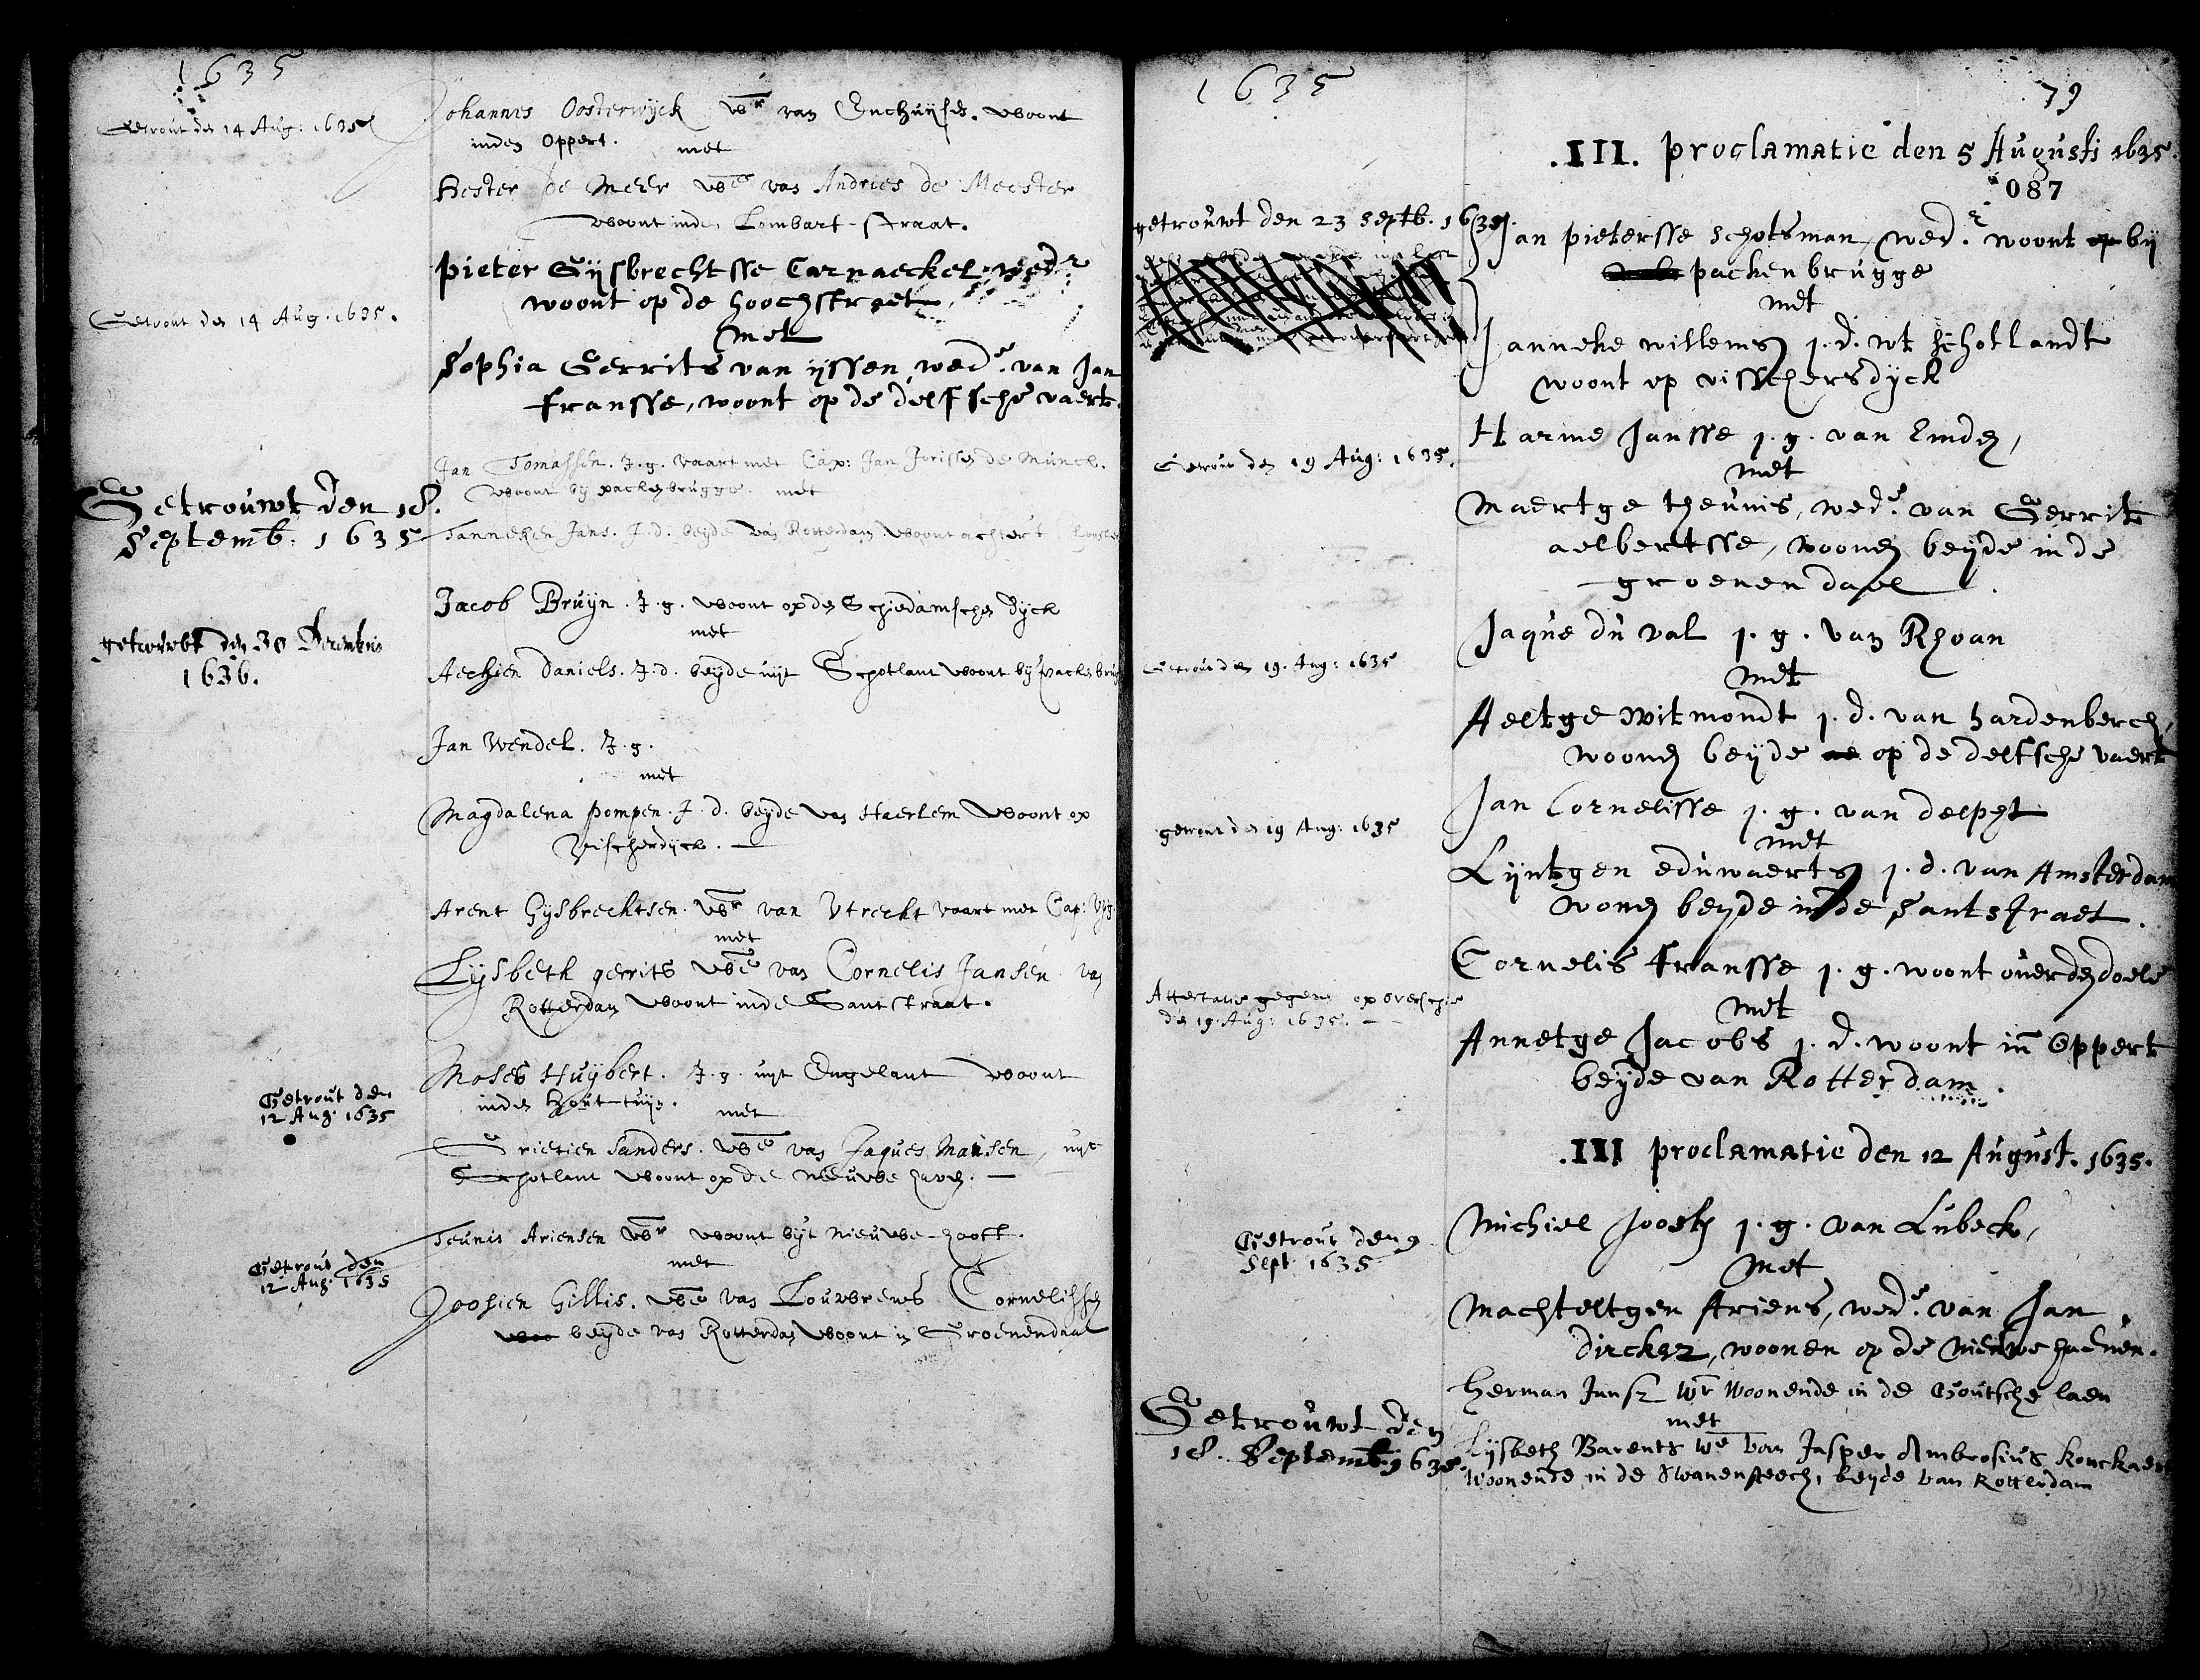 1635
Getrout den 14 Aug: 1635
Johannes Oosterwijck wr van Enchuijsen. woont
inden Oppert.
met
Hester de Meer we van Andries de Meester
woont inden Lombart-straat.
Getrout den 14 Aug. 1635.
pieter Gijsbrechtsse Carnaeckel, wedr
woont op de hoochstraet
met
Sophia Gerrits van ijssen, wede. van Jan
fransse, woont op de delfsche vaert.
Getrouwt den 18.
Septemb. 1635
Jan Tomassen. J.g. vaart met Cap: Jan Jorissen de Munck.
woont by packenbrugge. met
Tanneken Jans. J.d. beyde van Rotterdam woont achter't
getrouwt den 30
1636.
Jacob Bruyn. J.g. woont op den Schiedamschen dyck
met
Aechien Daniels. J.d. beyde uijt Schotlant woont bij packenbrug
Jan Wendel. J.g.
met
Magdalena Pompen. J.d. beyde van Haerlem woont op
Vischerdyck.
Arent Gysbrechtsen. wr van Vtrecht vaart met Cap:
met
Lijsbeth gerrits we van Cornelis Jansen. van
Rotterdam woont inde Santstraat.
Getrout den
12 Aug. 1635
Moses Huijbert. J.g. uijt Engelant woont
inden Hout-tuijn.
met
Grietien Sanders. we van Jaques Mansen, uijt
Schotlant woont op de nieuwe haven.
Getrout den
12 Aug. 1635
Teunis Ariensen wr woont bijt nieuwe-hooft.
met
Joosien Gillis. we van Louwrens Cornelissen
beyde van Rotterdam woont in Groenendaal
1635
79
.III. proclamatie den 5 Augusti 1635.
087
getrouwt den 23 Septb. 1635
Jan pietersse Schotsman, wedr. woont op bij
packenbrugge
met
Janneke willems j.d. wt schotlandt
woont op visschersdijck
Getrout den 19 Aug: 1635.
Harme Jansse j.g. van Emden,
met
Maertge theunis, wede. van Gerrit
aelbertsse, woonen beijde in de
groenendael.
Getrout den 19. Aug: 1635
Jaque du val j.g. van Rhoan
met
Aeltge Witmondt j.d. van hardenberch,
woonen beijde op de delfsche vaert
getrout den 19 Aug: 1635
Jan Cornelisse j.g. van delpht
met
Lijntgen eduwaerts j.d. van Amsterdam
wonen beyde in de Santstraet.
Attestatie gegeven op overschie
den 19. Aug: 1635.
Cornelis fransse j.g. woont over den doele
met
Annetge Jacobs j.d. woont in Oppert
beijde van Rotterdam.
.III proclamatie den 12 August. 1635.
Getrout den 9
Sept. 1635
Michiel Joosten j.g. van Lubeck,
met
Machteltgen Ariens, wede. van Jan
dircksz, woonen op de nieuwe haeven.
Getrouwt den
18. Septemb. 1635.
Herman Jansz Wr woonende in de Goutsche laen
met
Lijsbeth Barents We van Jasper Ambrosius
Woonende in de Swanensteech, beyde van Rotterdam